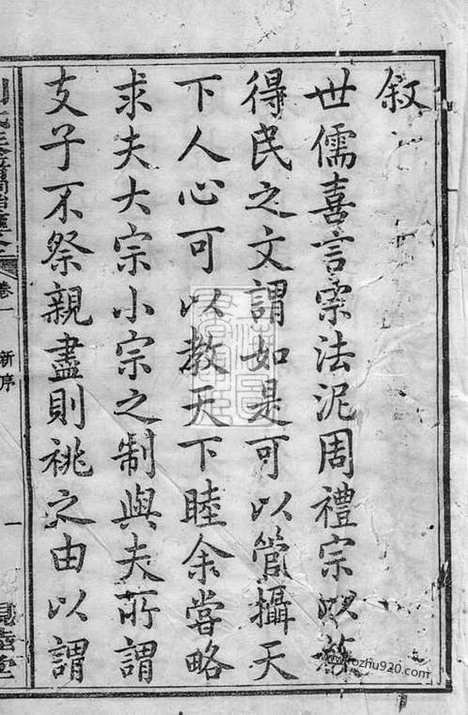 敘
世儒喜言宗法泥周禮宗以族
得民之文謂如是可以管攝天
下人心可以教天下睦余嘗略
求夫大宗小宗之制與夫所謂
支子不祭親盡則祧之由以謂
卷一
新序
一
睦堂
zhu920.com